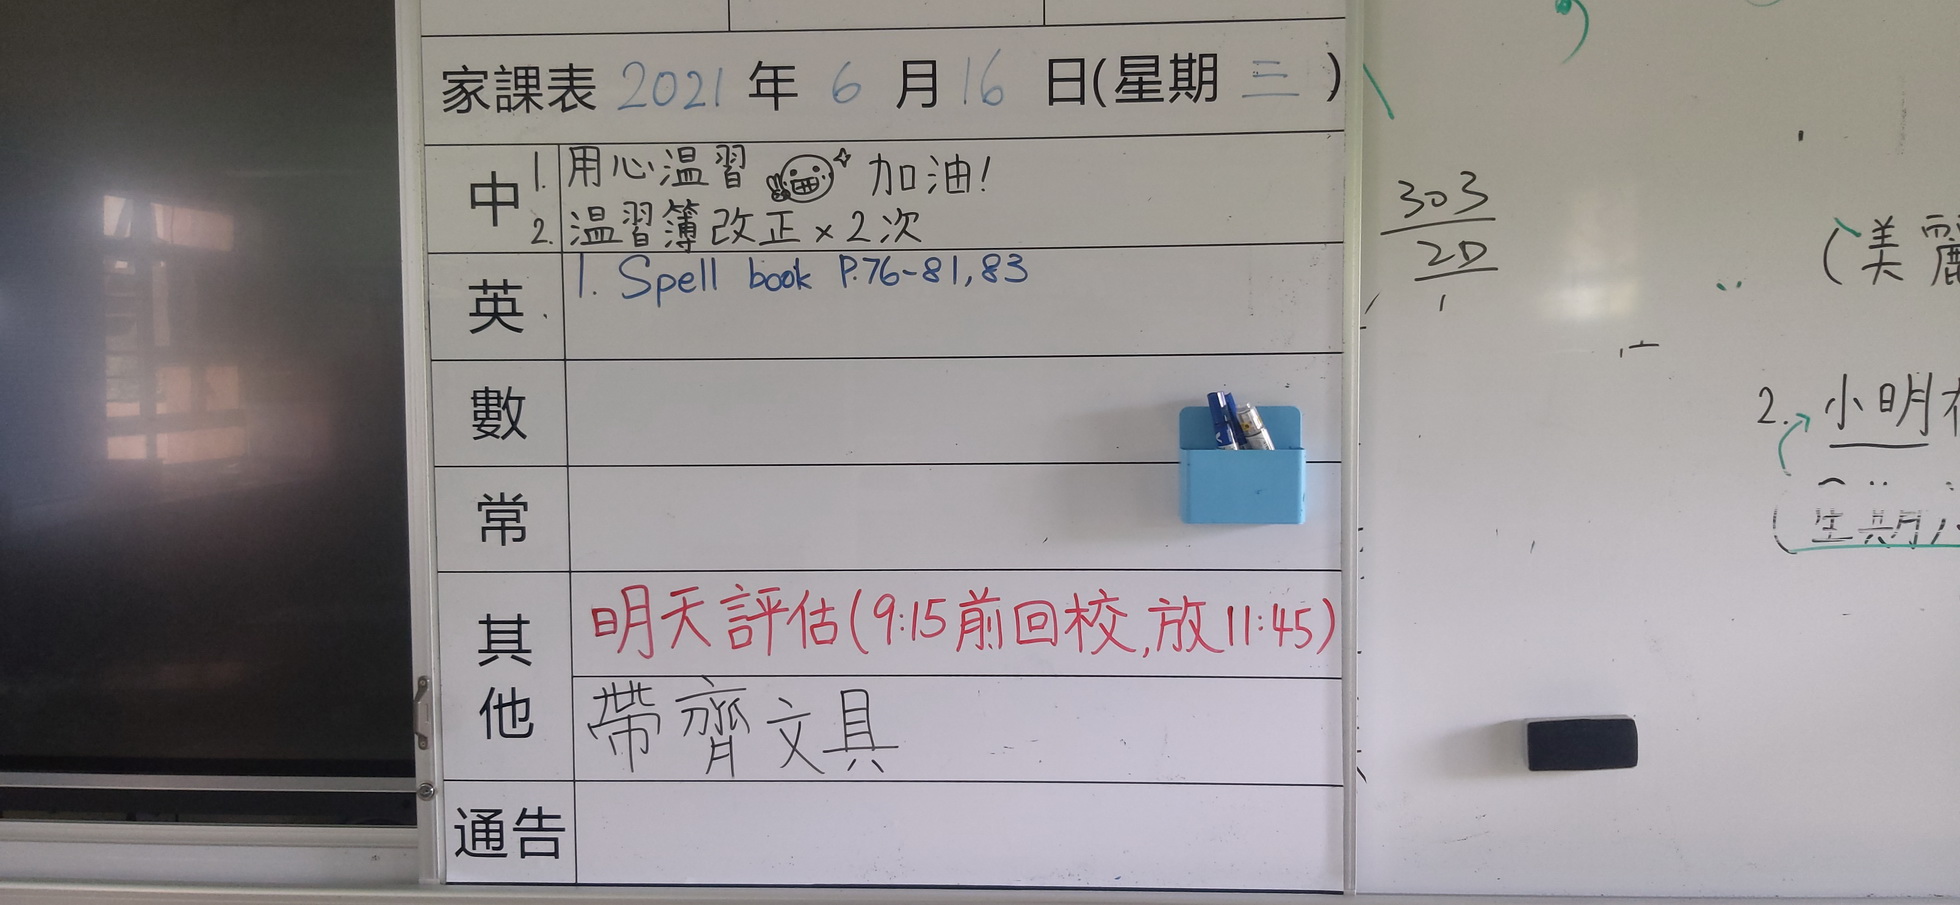 家課表 2021 年 6 月 16 日(星期 三 )
中 1. 用心温習 加油!
2. 温習簿改正 x 2次
英 1. Spell book P.76-81, 83
數
常
其他 明天評估(9:15前回校,放11:45)
帶齊文具
通告
303
20
(美麗
2. 小明